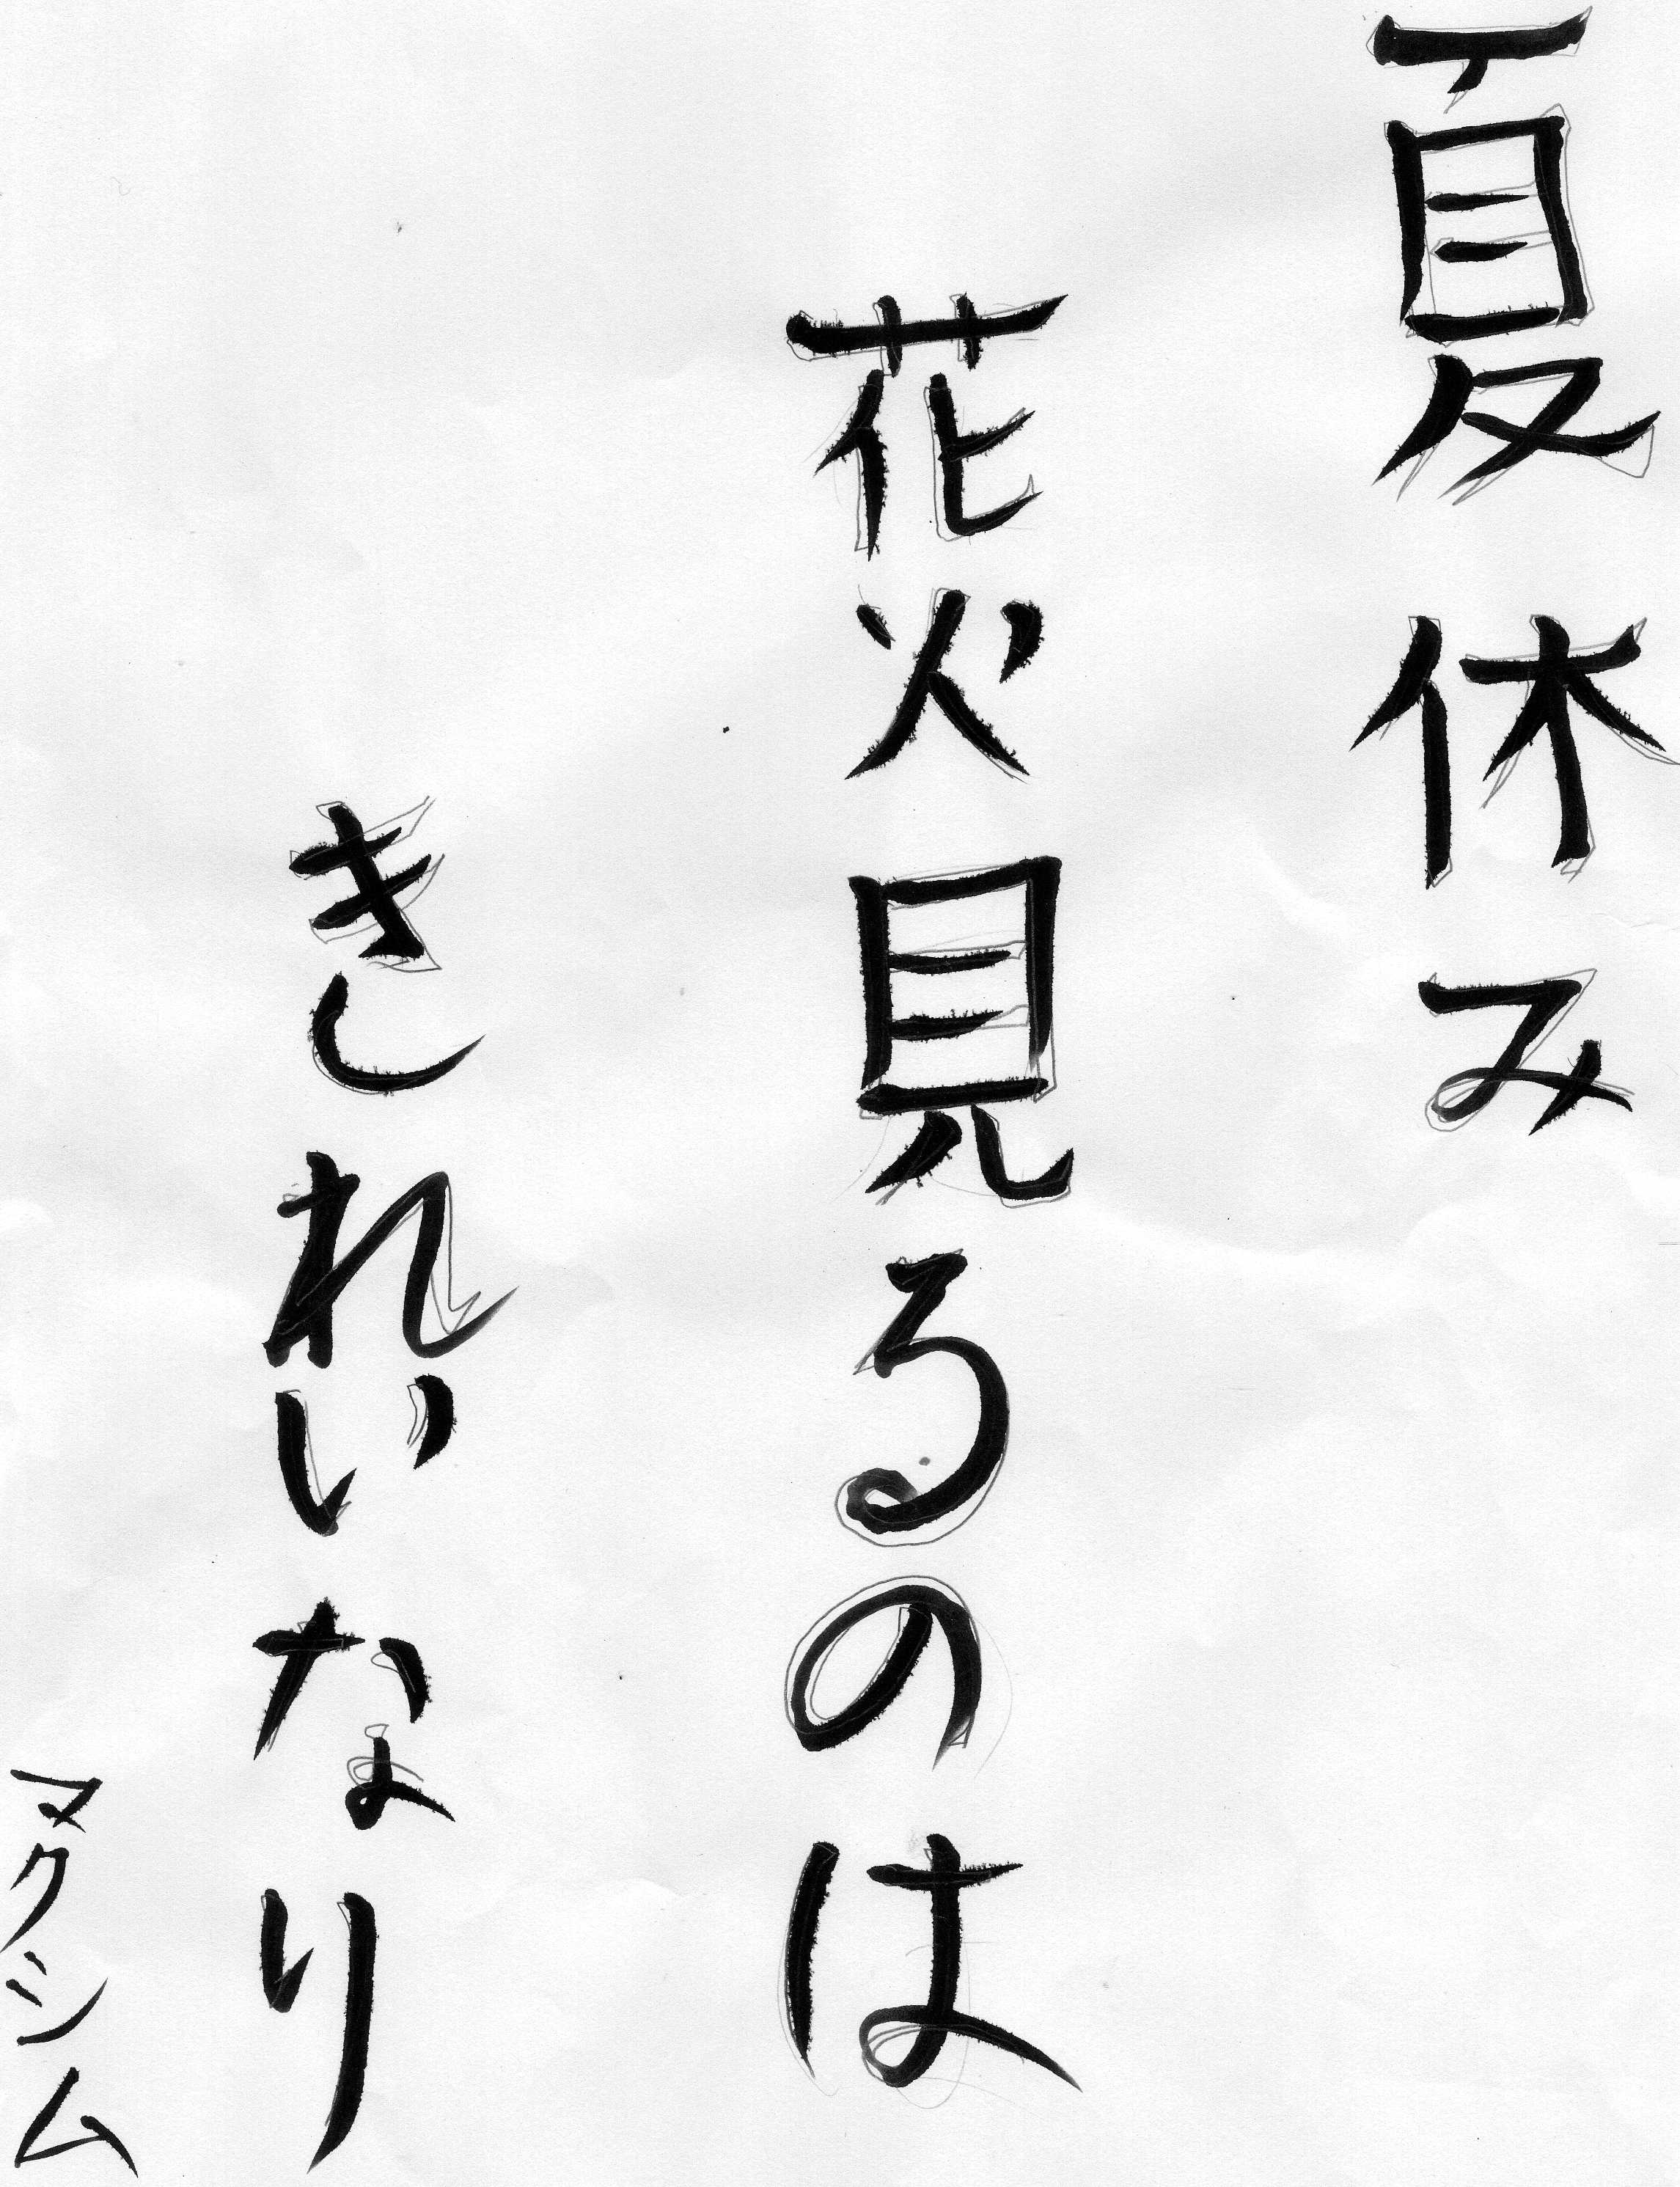 夏休み
花火見るのは
きれいなり
マクシム